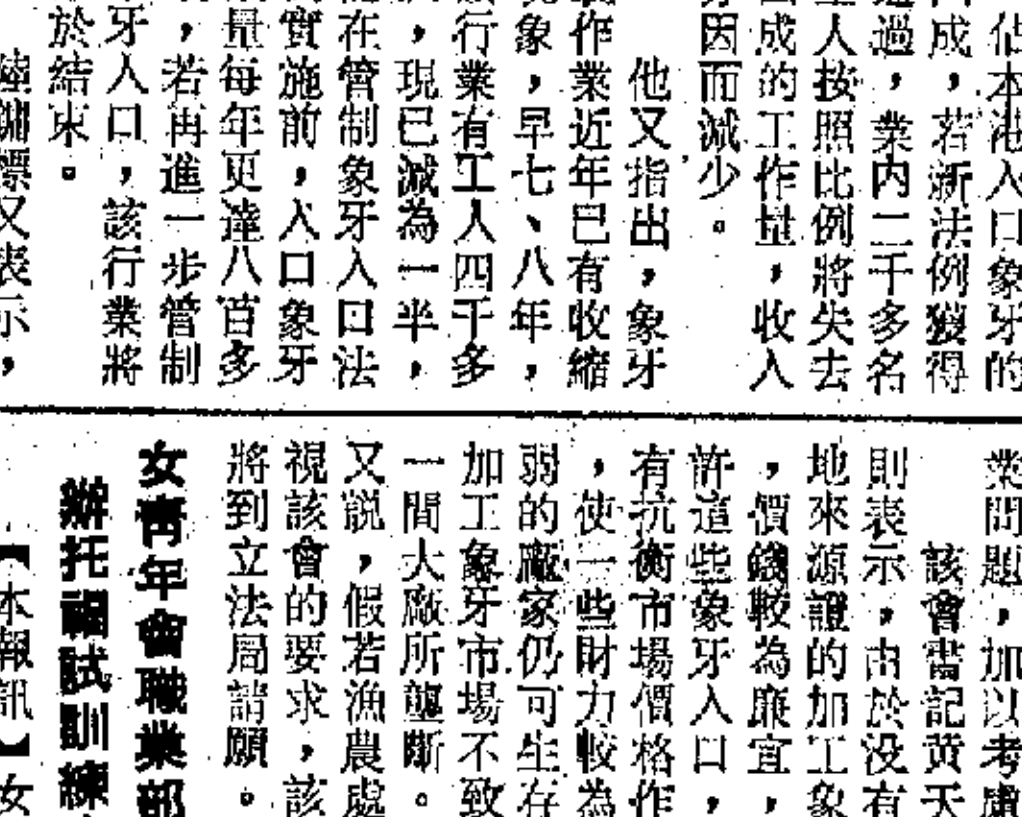 佔本港入口象牙的
成，若新法例獲得
過，業内二千多名
人按照比例將失去
成的工作量，收入
因而減少。
他又指出，象牙
作業近年巳有收縮
象，早七、八年，
行業有工人四千多
，現已減為一半，
在管制象牙入口法
實施前，入口象牙
量每年更達八百多
，若再進一步管制
牙入口，該行業將
於結束。
又表示，
業問題，加以考慮
該會書記黄天
則表示，由於没有
地來源證的加工象
，價錢較為廉宜，
許這些象牙入口，
有抗衡市場價格作
，使一些財力較為
弱的廠家仍可生存
加工象牙市場不致
一間大廠所壟斷。
又説，假若漁農處
視該會的要求，該
將到立法局請願。
女青年會職業部
辦托福試訓練
【本報訊】女